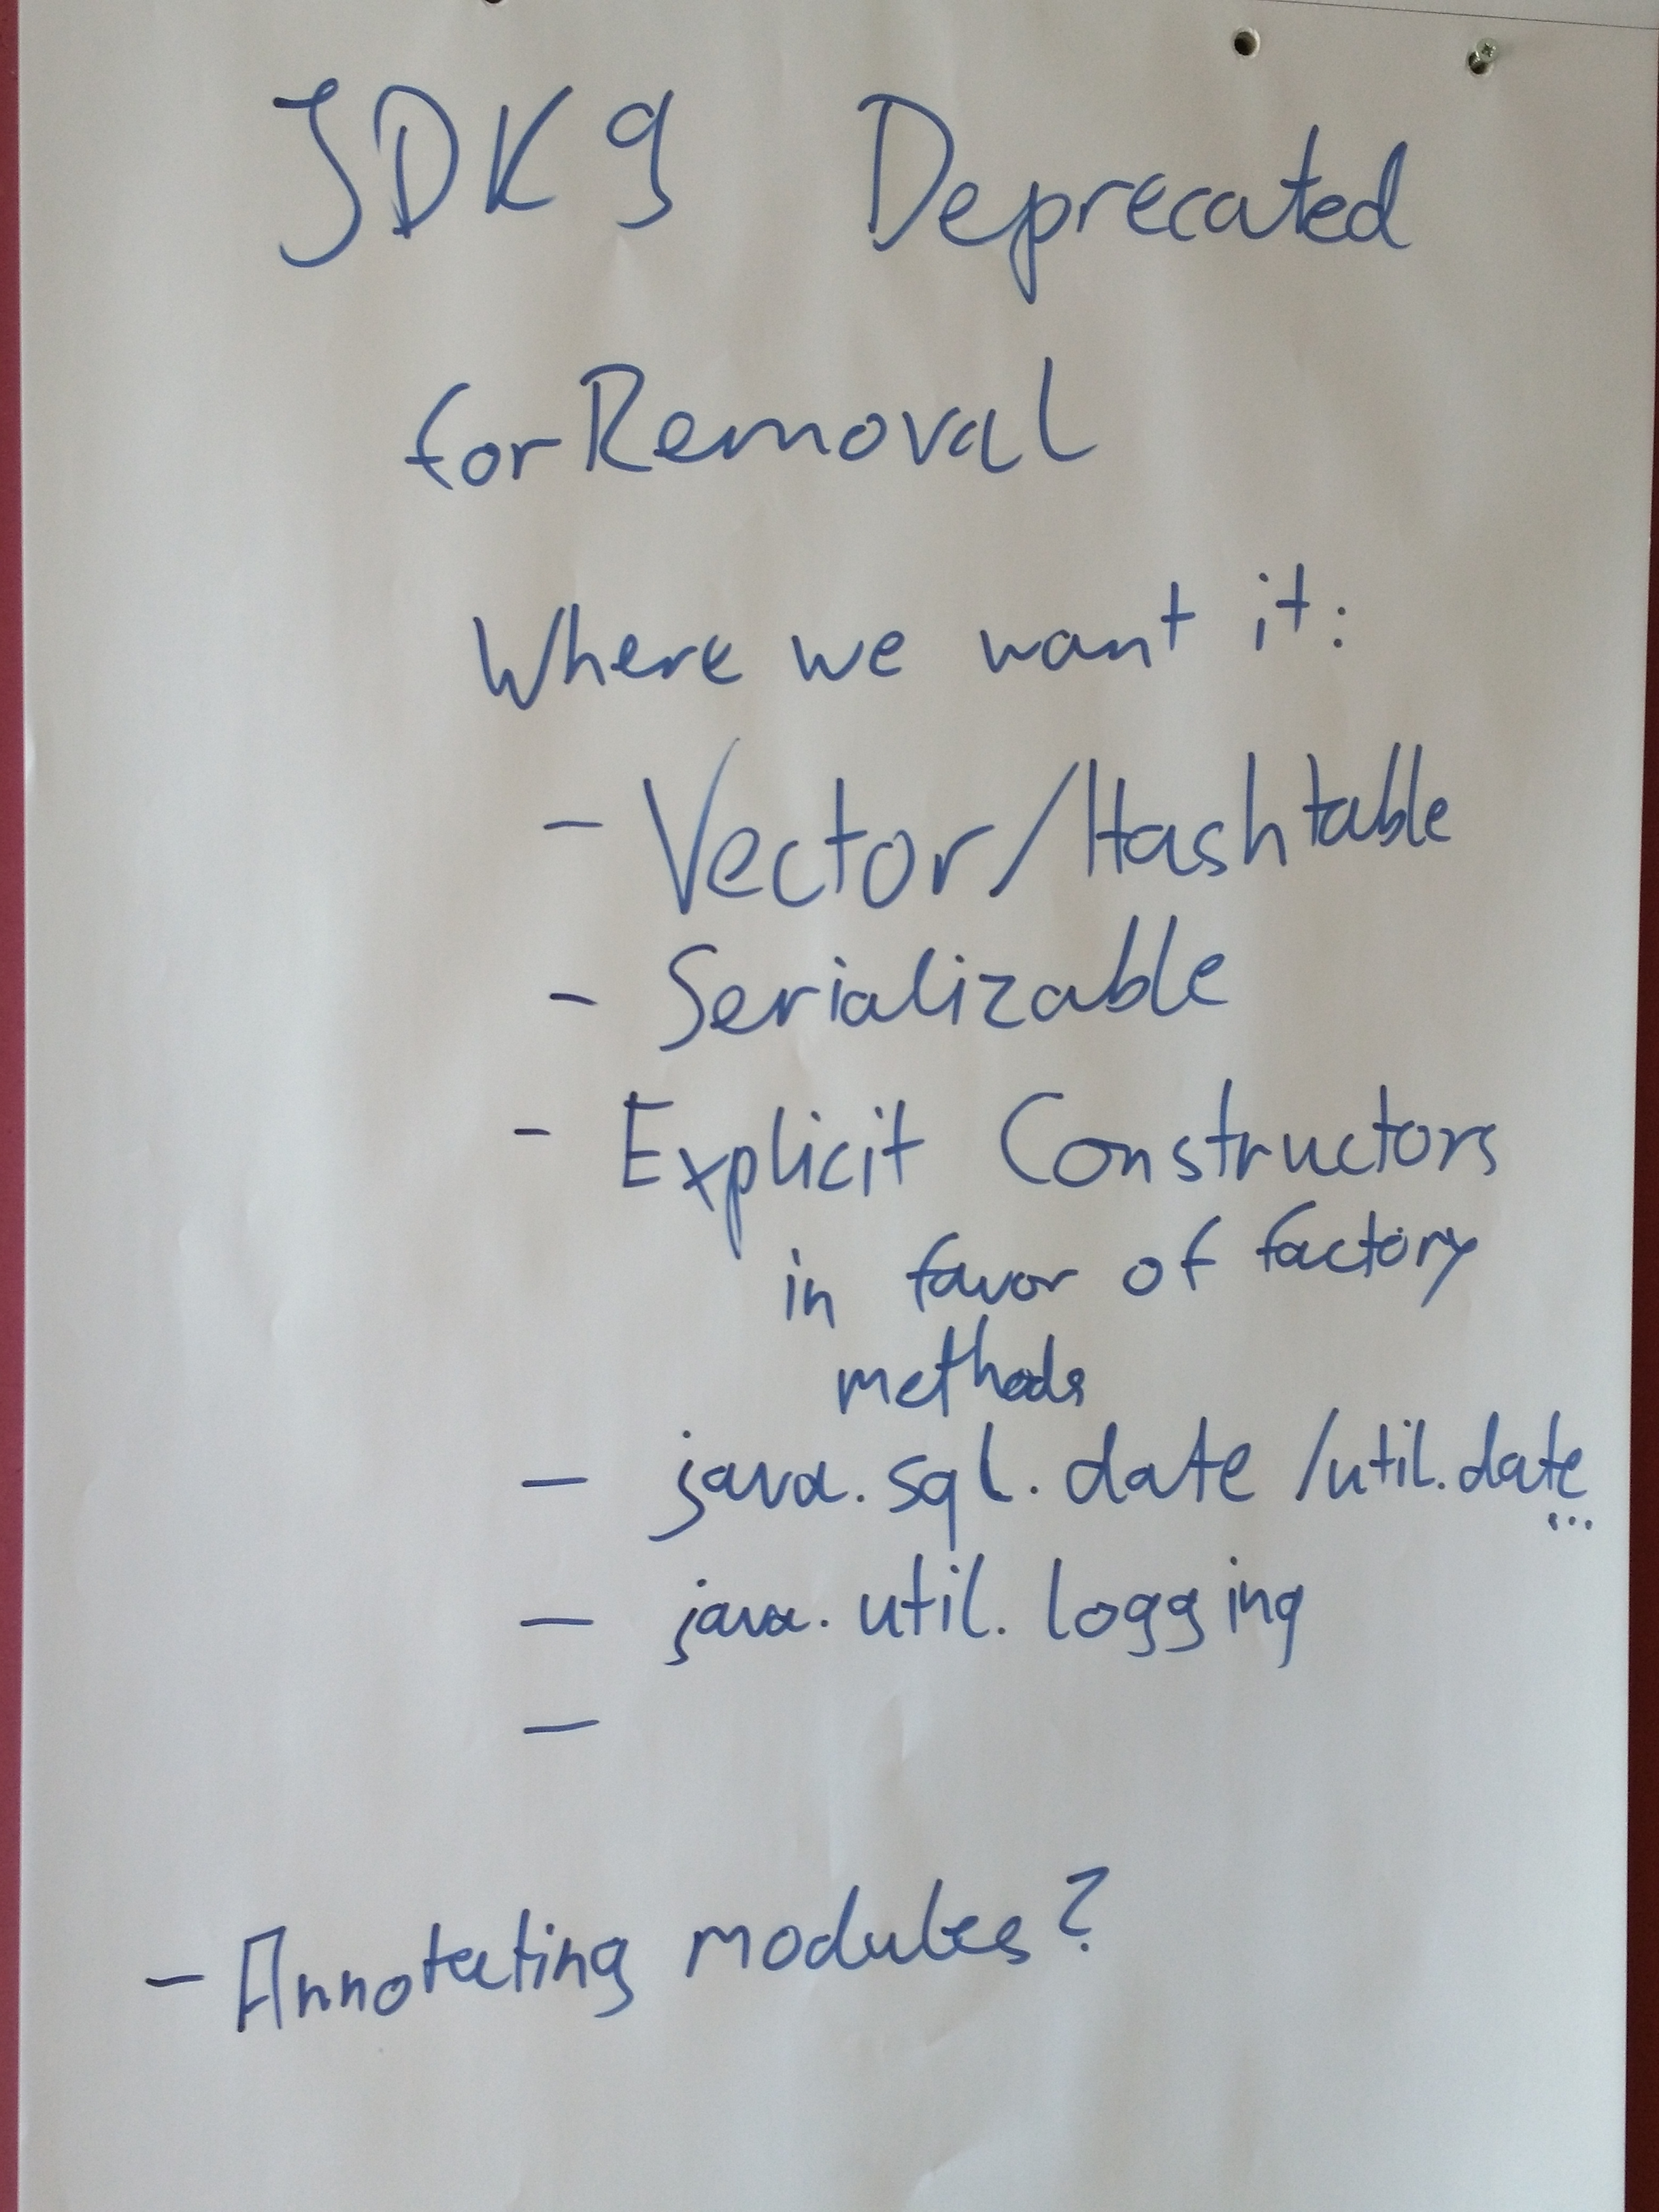 JDK 9 Deprecated
forRemoval
Where we want it:
- Vector/Hashtable
- Serializable
- Explicit Constructors
in favor of factory
methods
- java.sql.date /util.date
...
- java.util.logging
-
- Annotating modules?